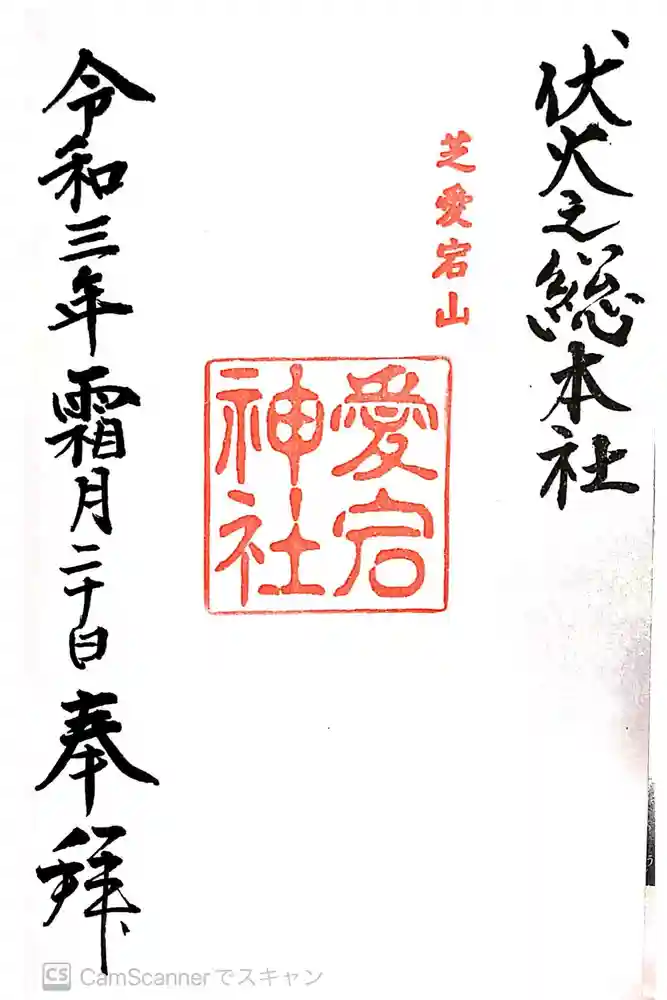 伏火之総本社
芝愛宕山
愛宕
神社
令和三年霜月二十日奉拝
CS CamScannerでスキャン